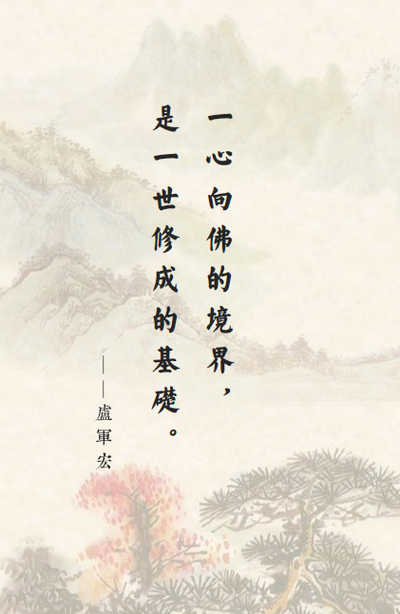 一心向佛的境界，
是一世修成的基礎。
——盧軍宏